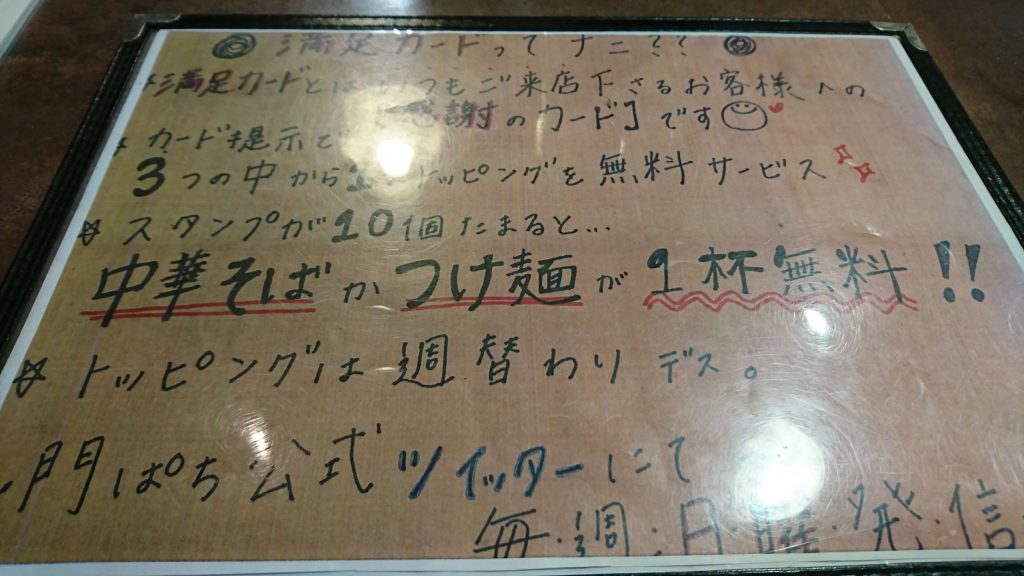 満足カードってナニ??
満足カードとはいつもご来店下さるお客様への
感謝のカード]です
カード提示で
3つの中から1、トッピングを無料サービス
スタンプが10個たまると...
中華そばかつけ麺が1杯無料!!
トッピングは週替わりデス。
門ぱち公式ツイッターにて
毎・週・日曜・発・信